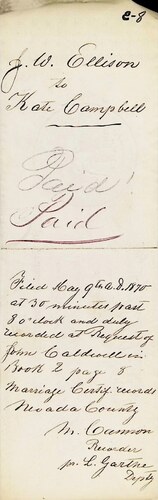 2-8
J. W. Ellison
to
Kate Campbell
Paid!
Paid
Filed May 9th A.D. 1870
at 30 minutes past
8 o'clock and duly
recorded at Request of
John Caldwell in
Book 2 page 8
Marriage Certif. records
Nevada County
M. Cannon
Recorder
pr. L. Gartne
Depty